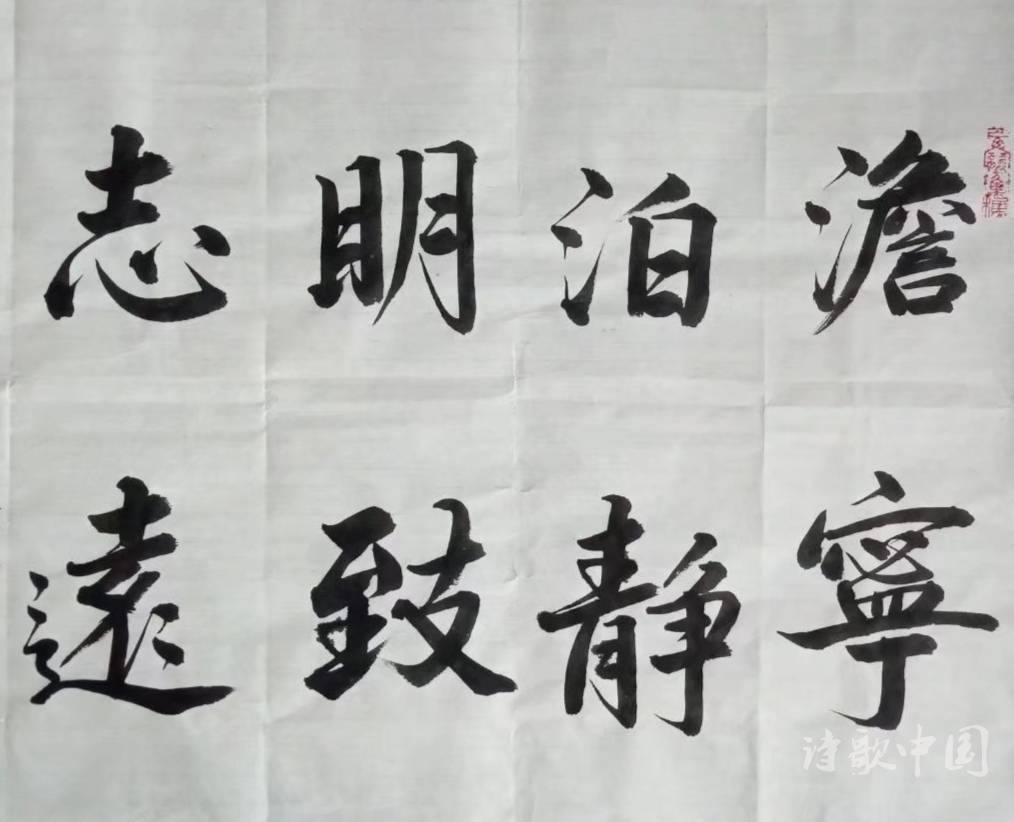 澹泊明志
寧静致遠
诗歌中国